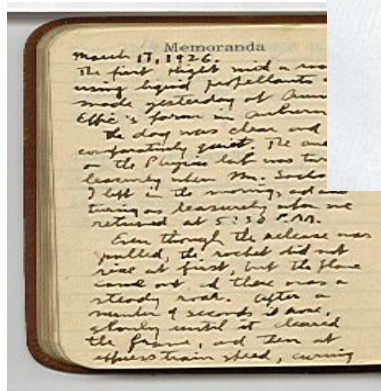 Memoranda
March 17, 1926.
The first flight with a
using liquid propellants
made yesterday at
Effie's farm in Auburn
The day was clear and
comparatively quiet. The
on the Physics lab was
leisurely when Mr. Sachs
I left in the morning, and
turning as leisurely when we
returned at 5:30 P.M.
Even though the release was
pulled, the rocket did not
rise at first, but the flame
came out, and there was a
steady roar. After a
number of seconds it rose,
slowly until it cleared
the frame, and then at
express train speed, curving